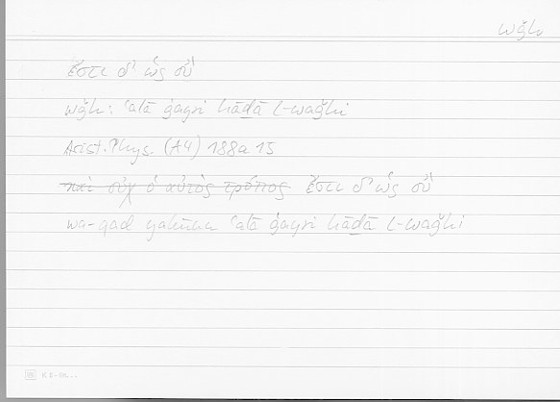 wǧh
ἔστι δ' ὡς οὔ
wǧh: ʿalā ġayri hāḏā l-waǧhi
Arist. Phys. (A4) 188a 15
καὶ οὐχ ὁ αὐτὸς τρόπος ἔστι δ' ὡς οὔ
wa-qad yakūnu ʿalā ġayri hāḏā l-waǧhi